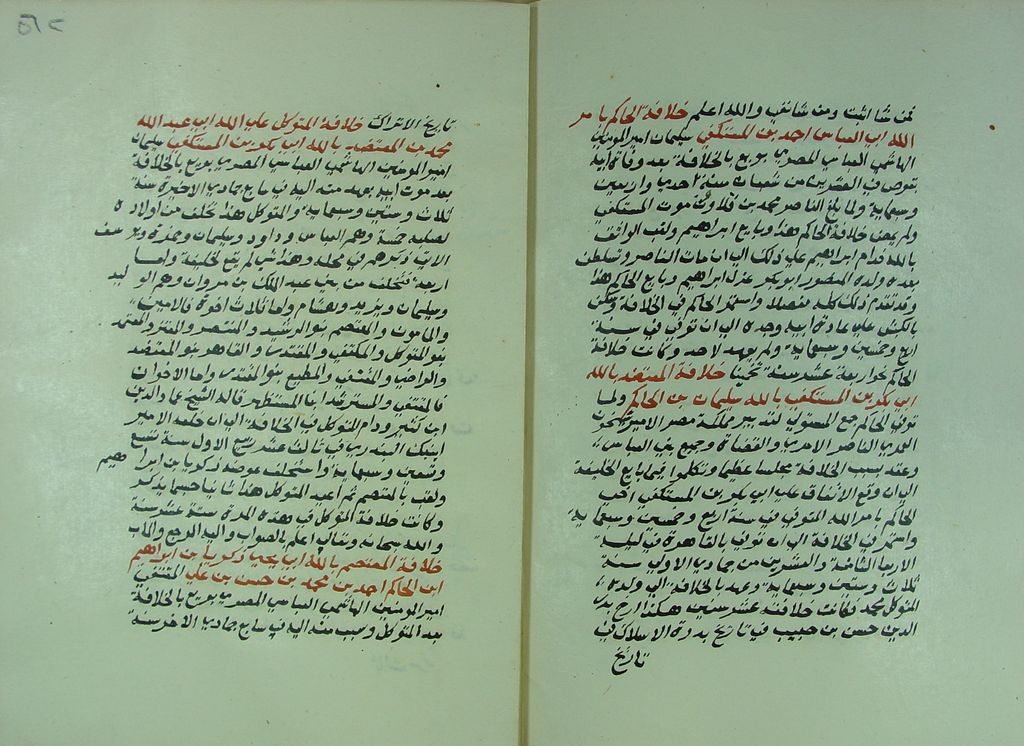 فمن شا اثبت ومن شا نفى والله اعلم خلافة الحاكم بامر
الله ابي العباس احمد بن المستكفي سليمان امير المومنين
الهاشمي العباسي المصري بويع بالخلافة بعد وفاة ابيه
بقوص في العشرين من شعبان سنة احدي واربعين
وسبعماية ولما بلغ الناصر محمد بن قلاوون موت المستكفي
ولم يمض خلافة الحاكم هذا وبايع ابراهيم ولقب الواثق
بالله فدام ابراهيم علي ذلك الي ان مات الناصر وتسلطن
بعده ولده المنصور ابو بكر عزل ابراهيم وبايع الحاكم هذا
وقد تقدم ذلك كله مفصلا واستمر الحاكم في الخلافة وسكن
بالكبش علي عادة ابيه وجده الي ان توفي في سنة
اربع وخمسين وسبعماية ولم يعهد لاحد وكانت خلافة
الحاكم نحو اربعة عشر سنة تخمينا خلافة المعتضد بالله
ابي بكر بن المستكفي بالله سليمان بن الحاكم ولما
توفي الحاكم جمع المتولي لتدبير مملكة مصر الامير شيخون
العمري الناصري الامرا والقضاة وجميع بني العباس
وعقد بسبب الخلافة مجلسا عظيما وتكلموا فيما يبايع الخليفة
الي ان وقع الاتفاق علي ابي بكر بن المستكفي اخي
الحاكم بامر الله المتوفي في سنة اربع وخمسين وسبعماية
واستمر في الخلافة الي ان توفي بالقاهرة في ليلة
الاربعا الثامنة والعشرين من جمادي الاولي سنة
ثلاث وستين وسبعماية وعهد بالخلافة الي ولده
المتوكل محمد فكانت خلافته عشر سنين هكذا ارخ بدر
الدين حسن بن حبيب في تاريخ بدرة الاسلاك في
تاريخ
تاريخ الاتراك خلافة المتوكل علي الله ابي عبد الله
محمد بن المعتضد بالله ابي بكر بن المستكفي سليمان
امير المومنين الهاشمي العباسي المصري بويع بالخلافة
بعد موت ابيه بعهد منه اليه في سابع جمادي الاخرة سنة
ثلاث وستين وسبعماية والمتوكل هذا تخلف من اولاده
لصلبه خمسة وهم العباس وداود وسليمان وحمزة ويوسف
الاتي ذكرهم في محله وهذا شي لم يقع لخليفة واما
اربعة فتخلف من بني عبد الملك بن مروان وهم الوليد
وسليمان ويزيد وهشام واما ثلاث اخوة فالامين
والمامون والمعتصم بنو الرشيد والمنتصر والمعتز والمعتمد
بنو المتوكل والمكتفي والمقتدر والقاهر بنو المعتضد
والراضي والمتقي والمطيع بنو المقتدر واما الاخوان
فالمقتفي والمسترشد ابنا المستظهر قاله الشيخ عماد الدين
ابن كثير ودام المتوكل في الخلافة الي ان خلعه الامير
اينبك البدري في ثالث عشر ربيع الاول سنة تسع
وسبعين وسبعماية واستخلف عوضه زكريا بن ابراهيم
ولقب بالمعتصم ثم اعيد المتوكل هذا ثانيا حسبما يذكر
وكانت خلافة المتوكل في هذه المرة ستة عشر سنة
والله سبحانه وتعالي اعلم بالصواب واليه المرجع والماب
خلافة المعتصم بالله ابي يحيى زكريا بن ابراهيم
ابن الحاكم احمد بن محمد بن حسن بن علي القتبي
امير المومنين الهاشمي العباسي المصري بويع بالخلافة
بعد المتوكل وبسبب منه اليه في سابع جمادي الاخر سنة